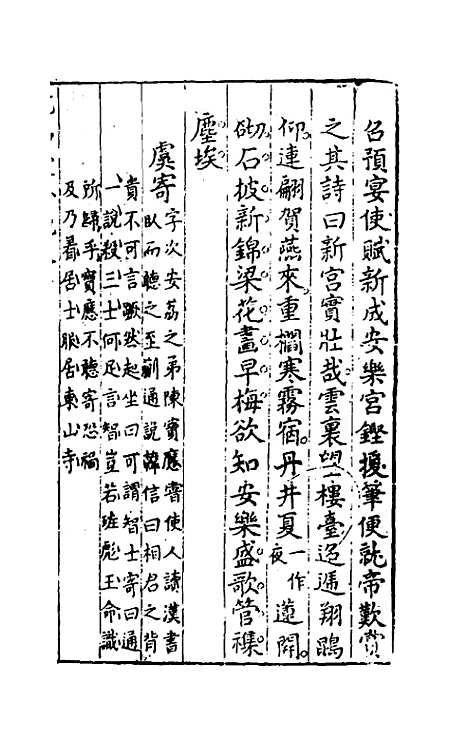 召預宴使賦新成安樂宮鏗援筆便就帝歎賞
之其詩曰新宮實壯哉雲裏望樓臺迢遞翔鵾
仰連翩賀燕來重櫩寒霧宿丹井夏一作夜蓮開
砌石披新錦梁花畫早梅欲知安樂盛歌管襍
塵埃
虞寄字次安荔之弟陳寶應嘗使人讀漢書
臥而聽之至蒯通說韓信曰相君之背
貴不可言蹶然起坐曰可謂智士寄曰通
一說殺三士何足言智豈若班彪王命識
所歸乎寶應不聽寄恐禍
及乃着居士服居東山寺